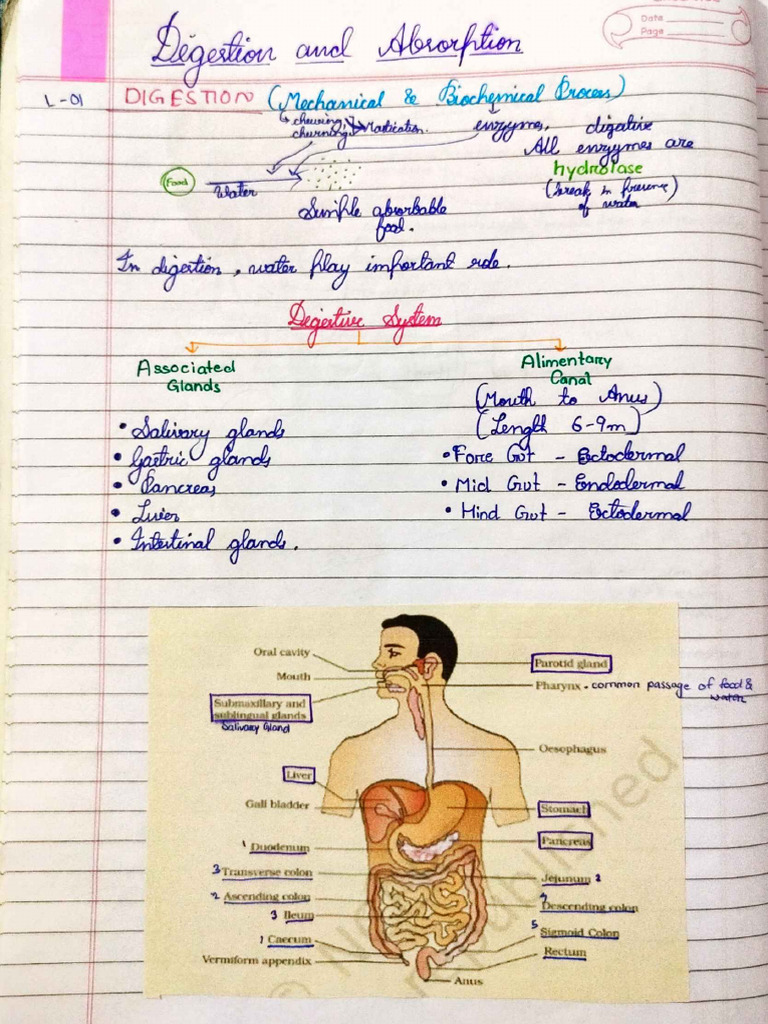 Date
Page
Digestion and Absorption
L-01 DIGESTION (Mechanical & Biochemical Process)
chewing
churning Mastication. enzymes, digative
All enzymes are
hydrolase
(break in presence
of water)
Food
Water
Simple absorbable
food.
In digestion, water play important role.
Degestive System
Associated
Glands
Alimentary
Canal
(Mouth to Anus)
(Length 6-9m)
• Salivary glands
• Gastric glands
• Pancreas
• Liver
• Intestinal glands.
• Fore Gut - Ectodermal
• Mid Gut - Endodermal
• Hind Gut - Ectodermal
Oral cavity
Mouth
Submaxillary and
sublingual glands
Salivary Gland
Liver
Gall bladder
1 Duodenum
3 Transverse colon
2 Ascending colon
3 Ileum
1 Caecum
Vermiform appendix
Parotid gland
Pharynx • common passage of food &
water
Oesophagus
Stomach
Pancreas
Jejunum 2
4 Descending colon
5 Sigmoid Colon
Rectum
Anus